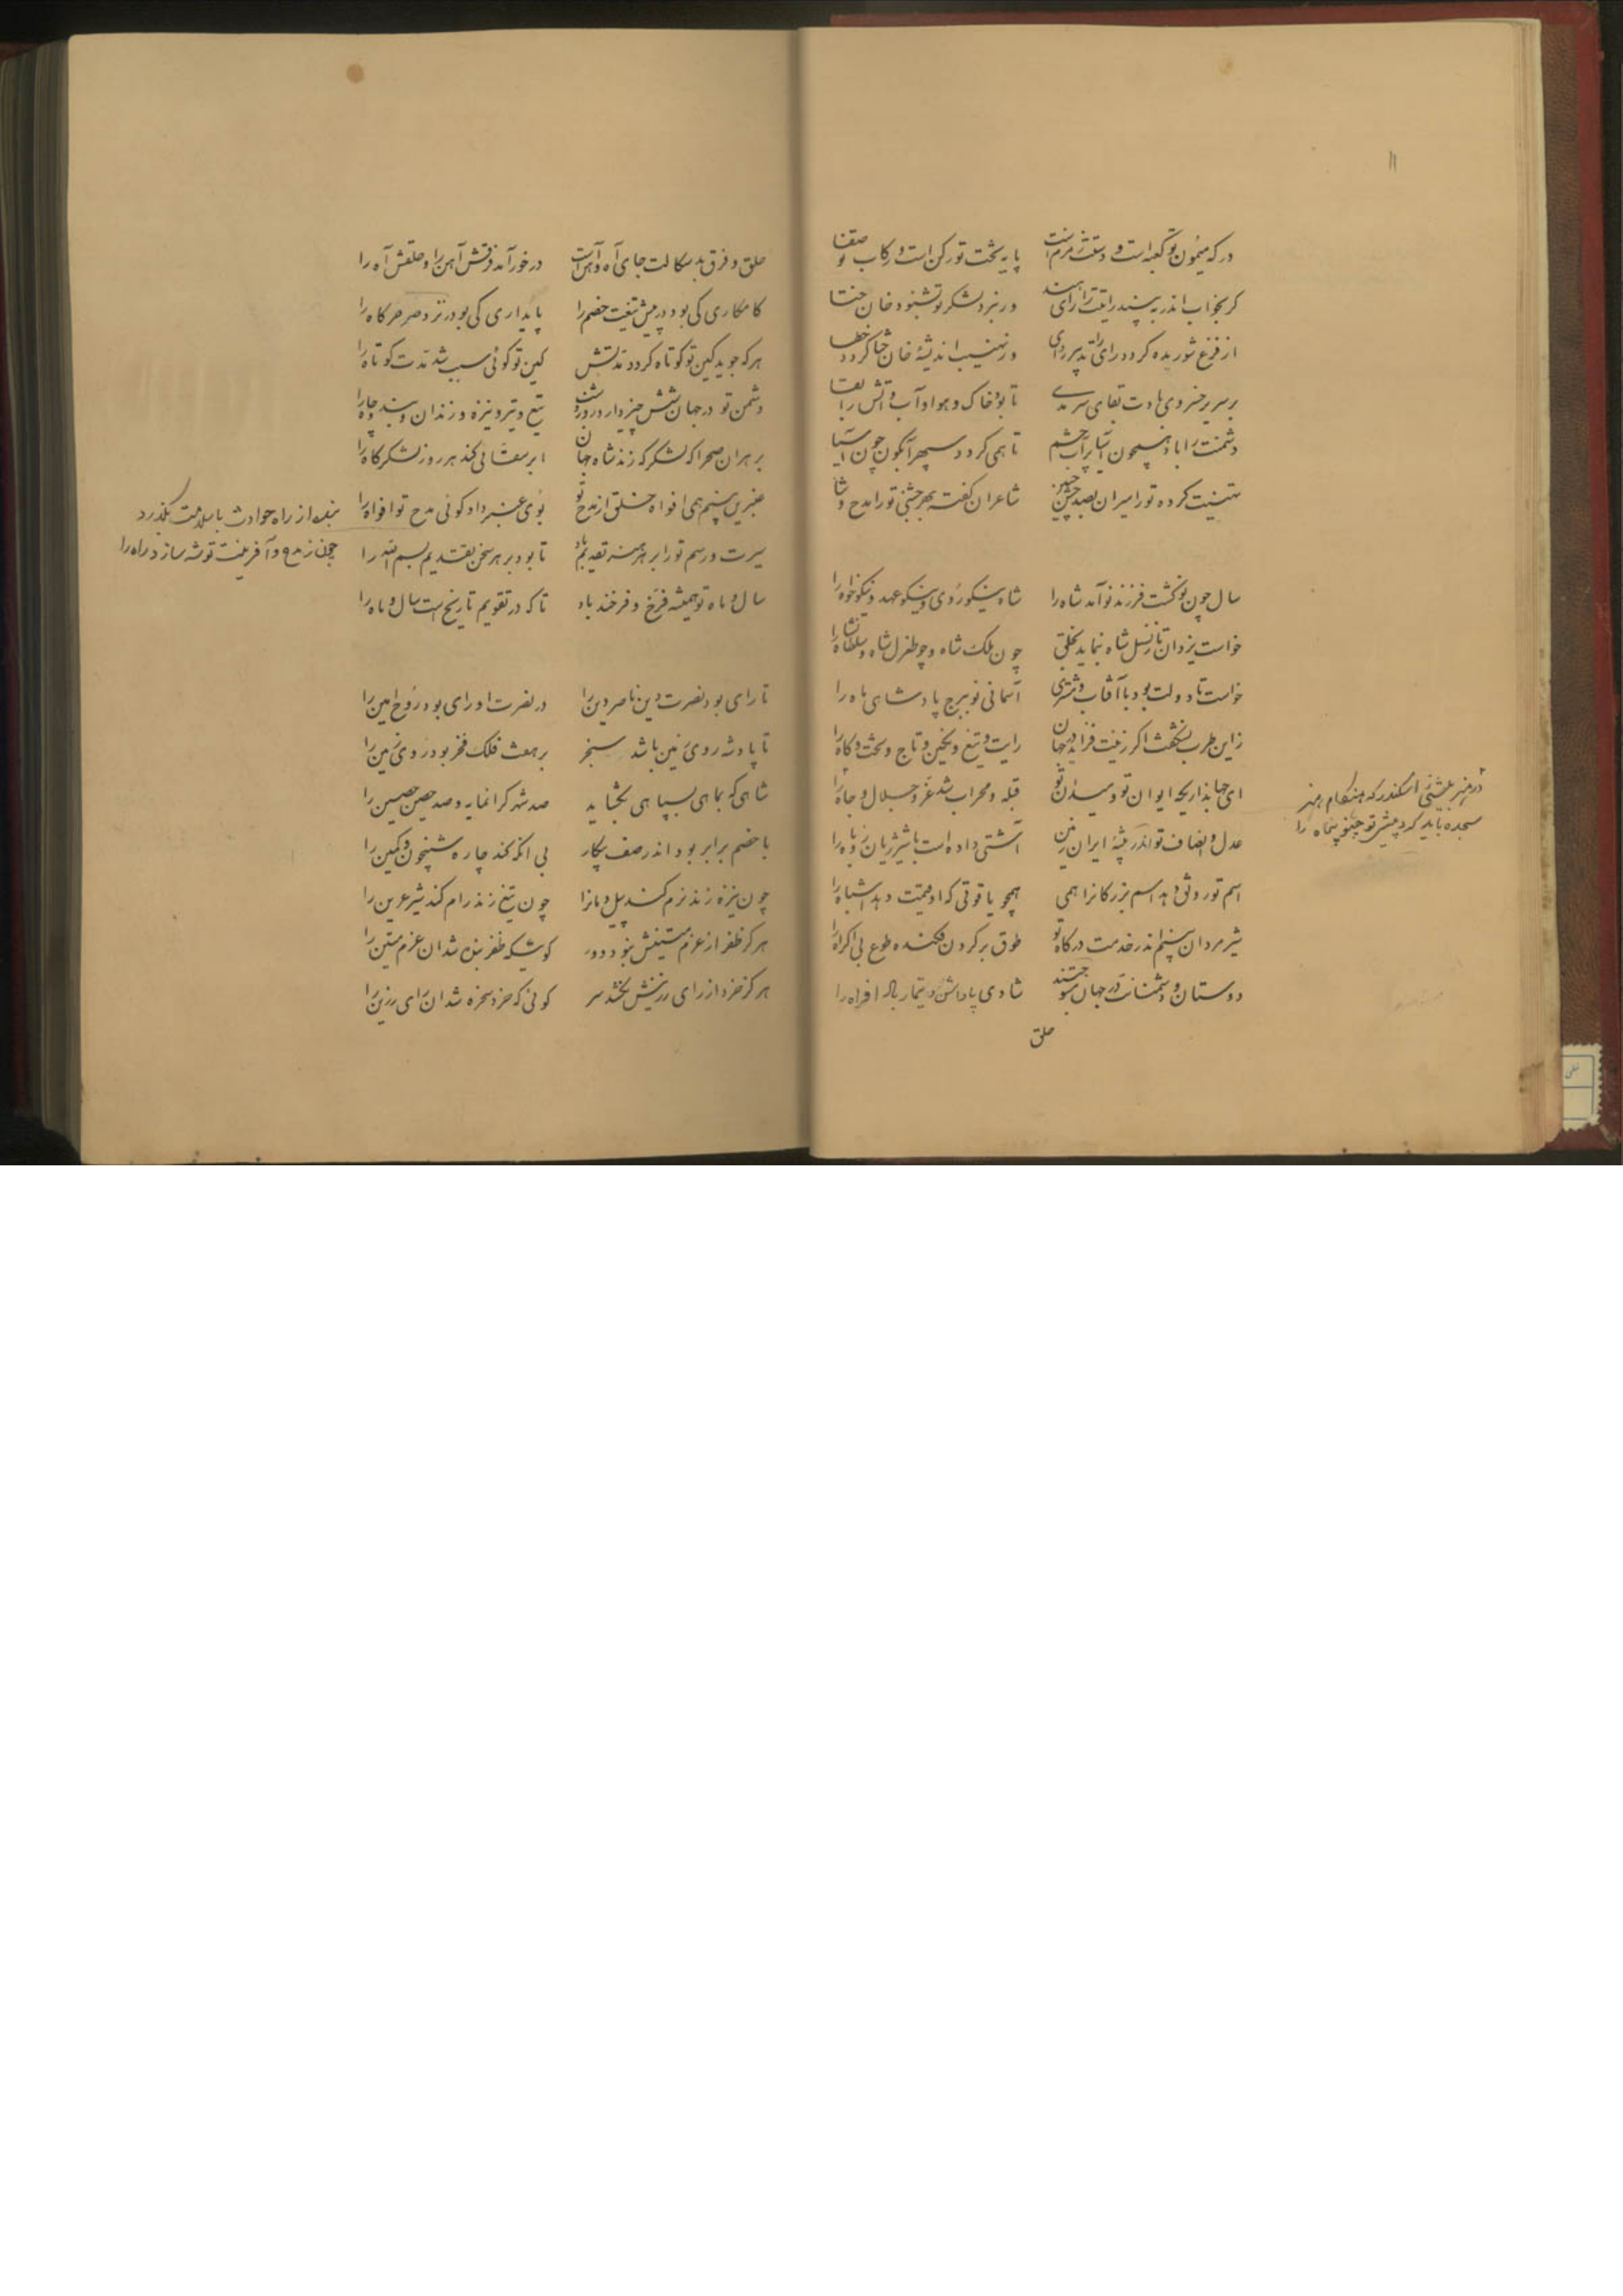 ۱۱
درکه میمون تو کعبه است و دستت زمزم است پایه تخت تو رکن است و رکاب تو صفا
کر بخواب اندر ببیند رایتت را رای هند ور نبرد لشکر تو بشنود خان ختا
از فزع شوریده کردد رای را تدبیر رای ور نهیب اندیشهٔ خان خطا کردد خطا
بر سریر خسروی بادت بقای سرمدی تا بود خاک و هوا و آب و آتش را بقا
دشمنت را باد همچون آسیا پر آب چشم تا همی کردد سپهر آبکون چون آسیا
تهنیت کرده تو را میران بصد جشن چنین شاعران کفته بهر جشنی تو را مدح و ثنا
سال چون نو کشت فرزند نو آمد شاه را شاه نیکو روی و نیکو عهد و نیکو خواه را
خواست یزدان تا ز نسل شاه بنماید بخلق چون ملک شاه و چو طغرل شاه و سلطان شاه را
خواست تا دولت بود با آفتاب و مشتری آسمانی نو ببرج پادشاهی ماه را
زاین طرب نشکفت اکر زینت فزاید در جهان رایت و تیغ و نکین و تاج و تخت و کاه را
ای جهانداریکه ایوان تو و میدان تو قبله و محراب شد عز و جلال و جاه را
در هنر بیشی ز اسکندر که هنکام هنر
سجده باید کرد پیش تو چنو پنجاه را
عدل و انصاف تو اندر بیشهٔ ایران زمین آشتی داده است با شیر ژیان روباه را
اسم تو رونق دهد اسم بزرکانرا همی همچو یاقوتی که او قیمت دهد اشباه را
شیر مردان بینم اندر خدمت درکاه تو طوق بر کردن فکنده طوع بی اکراه را
دوستان و دشمنانت در جهان جستند شادی پاداش و تیمار باد افراه را
حلق
حلق و فرق بدسکالت جای آه و آهن است درخور آمد فرقش آهن را و حلقش آه را
کامکاری کی بود در پیش تیغت خصم را پایداری کی بود در نزد صرصر کاه را
هرکه جوید کین تو کوتاه کردد مدتش کین تو کوئی سبب شد مدت کوتاه را
دشمن تو در جهان شش چیز دارد در وشت تیغ و تیر و نیزه و زندان و بند و چاه را
بر هر آن صحرا که لشکرکه زند شاه جهان ابر سقائی کند هر روز لشکرکاه را
عنبرین بینم همی افواه خلق از مدح تو بوی عنبر داد کوئی مدح تو افواه را
بنده از راه حوادث با سلامت بکذرد
چون ز مدح و آفرینت توشه سازد راه را
سیرت و رسم تو را بر هر هنر تقدیم باد تا بود بر هر سخن تقدیم بسم الله را
سال و ماه تو همیشه فرخ و فرخنده باد تا که در تقویم تاریخ است سال و ماه را
تا رای بود نصرت دین ناصر دین را در نصرت او رای بود روح امین را
تا پادشه روی زمین باشد سنجر بر هفت فلک فخر بود روی زمین را
شاهی که بماهی بسپاهی بخشاید صد شهر کرانمایه و صد حصن حصین را
با خصم برابر بود اندر صف پیکار بی آنکه کند چاره شبیخون و کمین را
چون نیزه زند نرم کند پیل دمانرا چون تیغ زند رام کند شیر عرین را
هرکز ظفر از عزم متینش نبود دور کوئیکه ظفر بنده شد آن عزم متین را
هرکز خرد از رای رزینش نکشد سر کوئی که خرد سخره شد آن رای رزین را